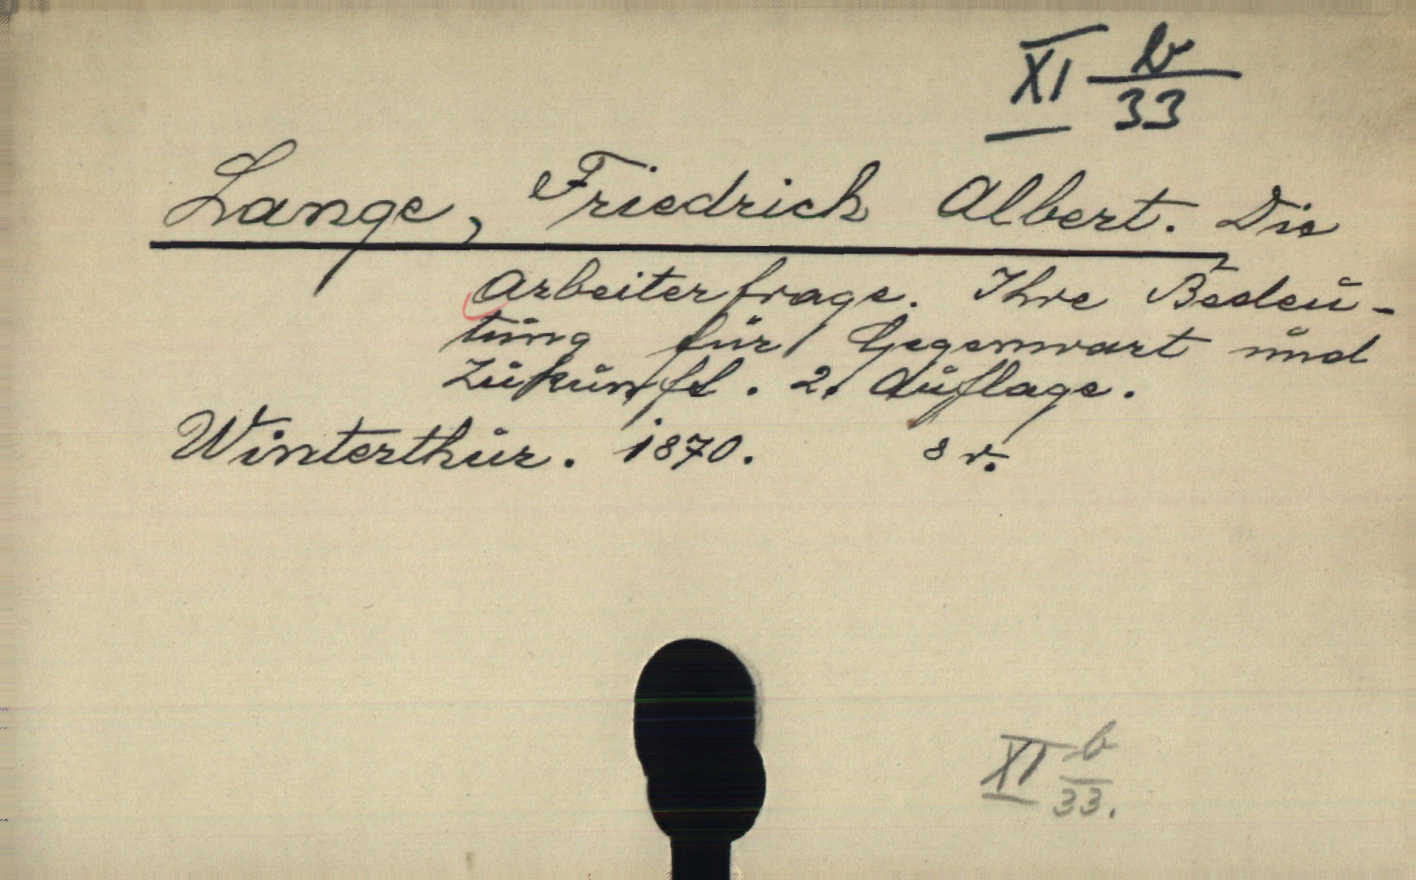 XI b/33
Lange, Friedrich Albert. Die
Arbeiterfrage. Ihre Bedeu-
tung für Gegenwart und
Zukunft. 2. Auflage.
Winterthur. 1870. 8 v.
XI b/33.